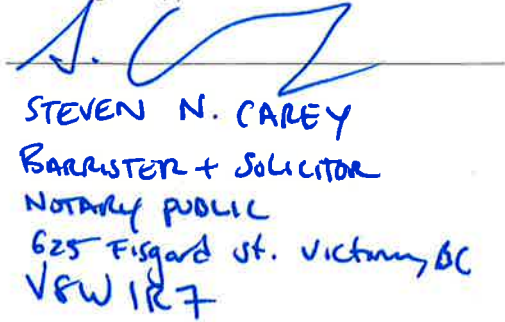 S. C
STEVEN N. CAREY
BARRISTER + SOLICITOR
NOTARY PUBLIC
625 Fisgard st. Victoria, BC
V8W 1R7